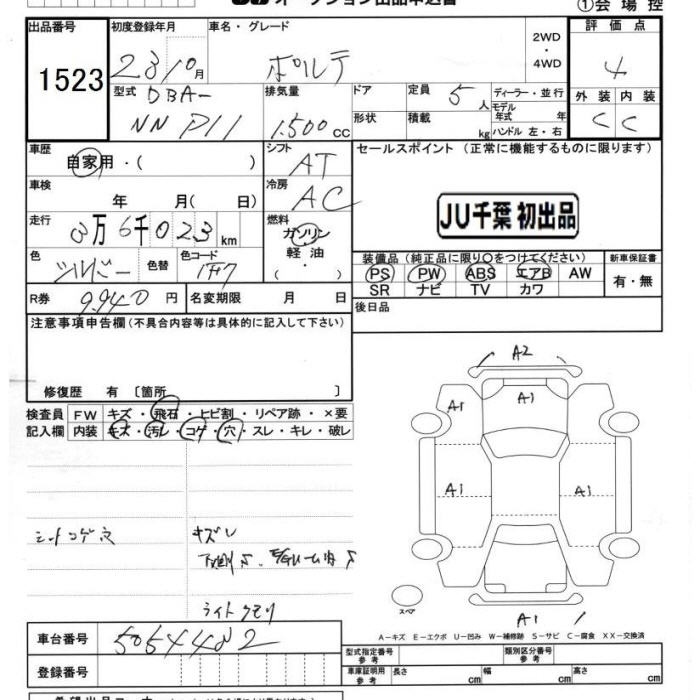 オークション出品申込書
①会場控
出品番号 初度登録年月 車名・グレード 2WD・4WD 評価点
1523 23/10月 ポルテ 4
型式 DBA- 排気量 ドア 定員 5人 ディーラー・並行 外装 内装
NNP11 1.500CC 形状 積載 kg モデル年式 年 C C
ハンドル 左・右
車歴 自家用・( ) シフト AT セールスポイント (正常に機能するものに限ります)
車検 年 月( 日) 冷房 AC
JU千葉 初出品
走行 3万6千023km 燃料 ガソリン・軽油・( )
色 シルバー 色替 色コード 装備品 (純正品に限り○をつけてください) 新車保証書
PS PW ABS エアB AW 有・無
SR ナビ TV カワ
R券 9.940円 名変期限 月 日 後日品
注意事項申告欄(不具合内容等は具体的に記入して下さい)
修復歴 有 〔箇所 〕
検査員 FW キズ・飛石・ヒビ割・リペア跡・×要
記入欄 内装 キズ・汚レ・コゲ・穴・スレ・キレ・破レ
A2
A1 A1
A1 A1
シートコゲ穴 キズレ
ライトクモリ
スペア
A1
A-キズ E-エクボ U-凹み W-補修跡 S-サビ C-腐食 XX-交換済
車台番号 5054482
型式指定番号 参考 類別区分番号 参考
登録番号
車庫証明用 参考 長さ cm 幅 cm 高さ cm